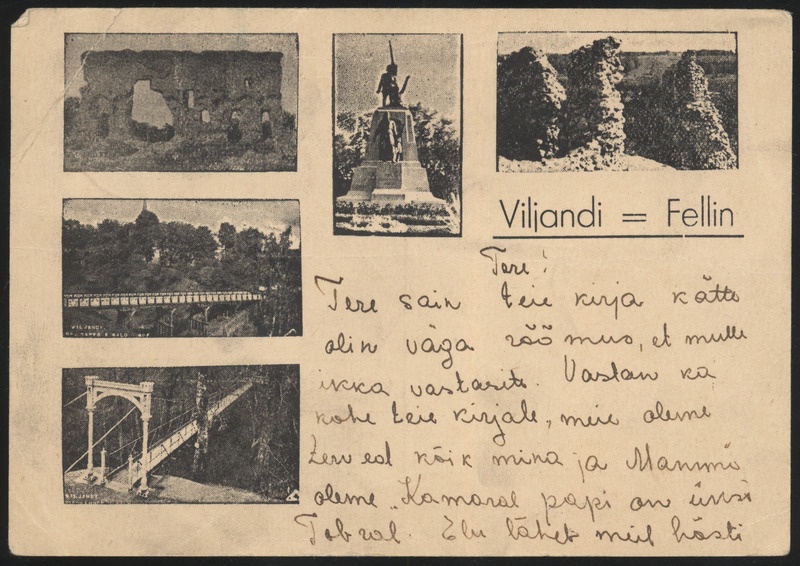 Viljandi = Fellin
Tere!
Tere sain teie kirja kätte
olin väga rõõmus, et mulle
ikka vastasite. Vastan ka
kohe teie kirjale, meie oleme
terved kõik mina ja Mammi
oleme „Kamaral papi on üksi
Tobral. Elu läheb meil hästi
VILJANDI
VILJANDI